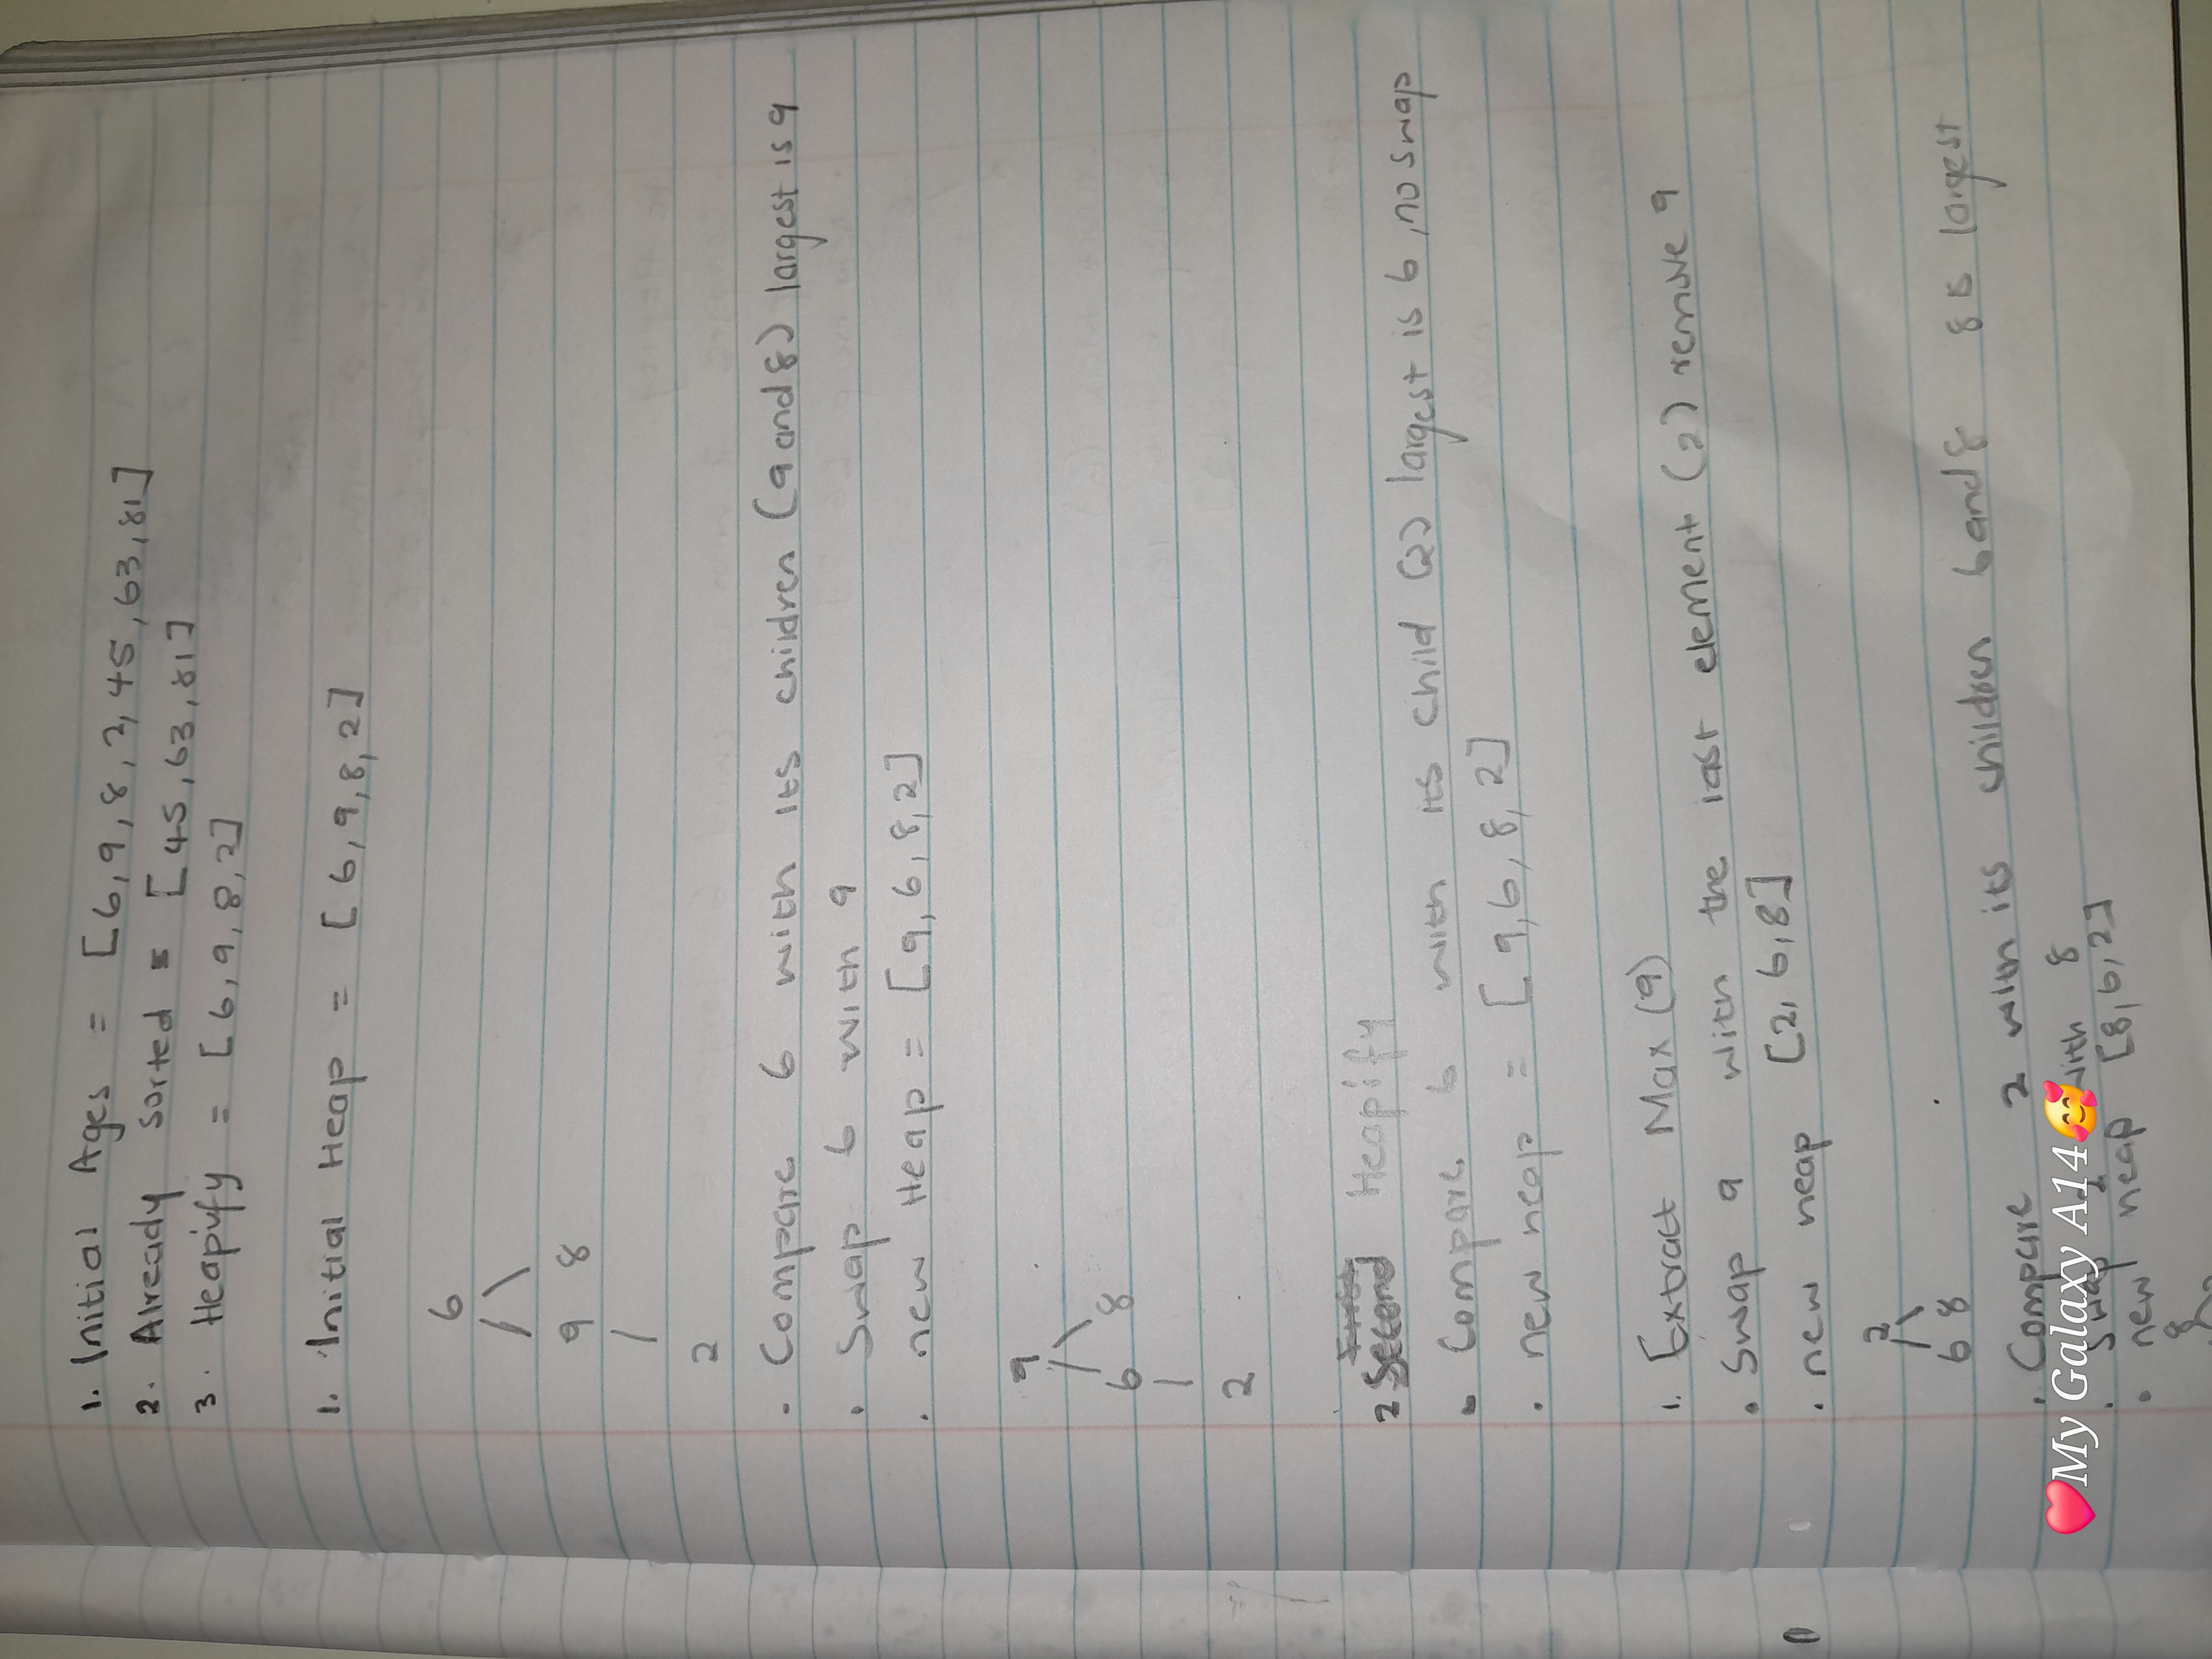 1. Initial Ages = [6, 9, 8, 2, 45, 63, 81]
2. Already sorted = [45, 63, 81]
3. Heapify = [6, 9, 8, 2]
1. Initial Heap = [6, 9, 8, 2]
6
/ \
9 8
/
2
- Compare 6 with its children (9 and 8) largest is 9
• Swap 6 with 9
• new Heap = [9, 6, 8, 2]
9
/ \
6 8
|
2
2 Second Heapify
• Compare 6 with its child (2) largest is 6, no swap
• new heap = [9, 6, 8, 2]
1. Extract Max (9)
• Swap 9 with the last element (2) remove 9
• new heap [2, 6, 8]
2
/ \
6 8
• Compare 2 with its children 6 and 8 8 is largest
• Swap 2 with 8
❤️My Galaxy A14🥰
• new heap [8, 6, 2]
8